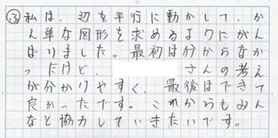 ③私は、辺を平行に動かして、か
ん単な図形を求めるようにがん
ばりました。最初は分からなか
ったけど、さんの考え
が分かりやすく、最後はできて
良かったです。これからもみん
なと協力していきたいです。